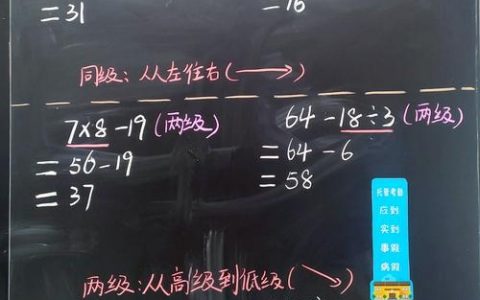 =31
=16
同级：从左往右(→)
7×8-19(两级)
=56-19
=37
64-18÷3(两级)
=64-6
=58
两级：从高级到低级(↘)
托管考勤
应到
实到
事假
病假